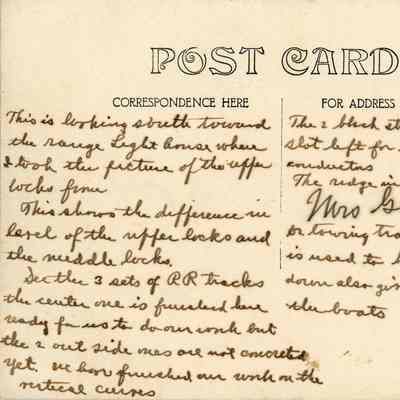 POST CARD
CORRESPONDENCE HERE
FOR ADDRESS
This is looking south toward
the range Light house where
I took the picture of the upper
locks from
This shows the difference in
level of the upper locks and
the middle locks.
See the 3 sets of RR tracks
the center one is finished here
ready for us to do our work but
the 2 out side ones are not concreted
yet. We have finished our work on the
vertical curves
The 2 black st
slot left for
conductors
The ridge in
Mrs G
or towing tra
is used to
down also gi
the boats